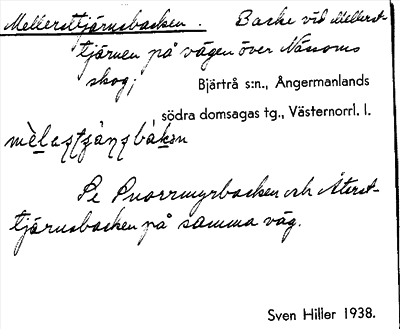 Mellersttjärnsbacken. Backe vid Mellerst-
tjärnen på vägen över Nässoms
skog;
Bjärtrå s:n., Ångermanlands
södra domsagas tg., Västernorrl. l.
Se Snorrmyrbacken och Återst-
tjärnsbacken på samma väg.
Sven Hiller 1938.